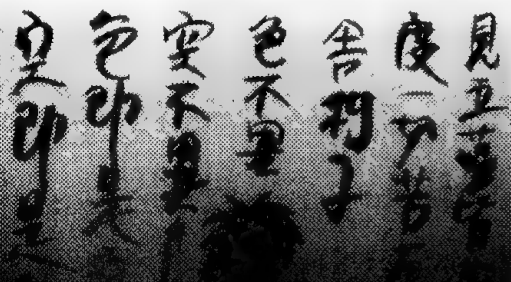 見五蘊皆
度一切苦
舍利子
色不異
空不異
色即是
空即是